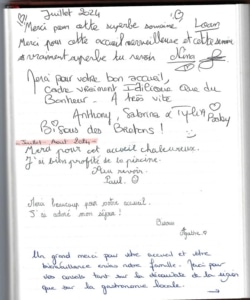 Juillet 2024
Merci pour cette superbe semaine. Loann
Merci pour cette accueil merveilleuse et cette semaine
vraiment superbe tu revoir Nina
Merci pour votre bon accueil,
Cadre vraiment Idilique que du
Bonheur. A très vite
Anthony, Sabrina &
Bisous des Bretons !
Juillet - Août 2024
Merci pour cet accueil chaleureux.
J'ai bien profité de la piscine.
Au revoir.
Paul.
Merci beaucoup pour votre accueil.
J'ai adoré mon séjour !
Bisous
Un grand merci pour cet accueil et votre
bienveillance envers notre famille. Merci pour
vos conseils tant sur la découverte de la région
que sur la gastronomie locale.